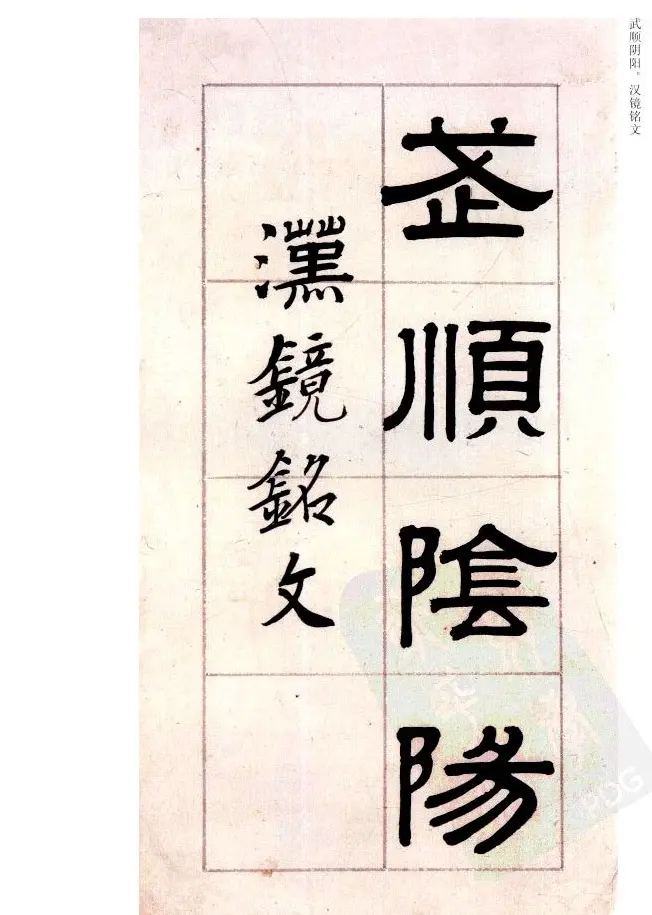 武顺阴阳。汉镜铭文
武順陰陽
漢鏡銘文
PDG